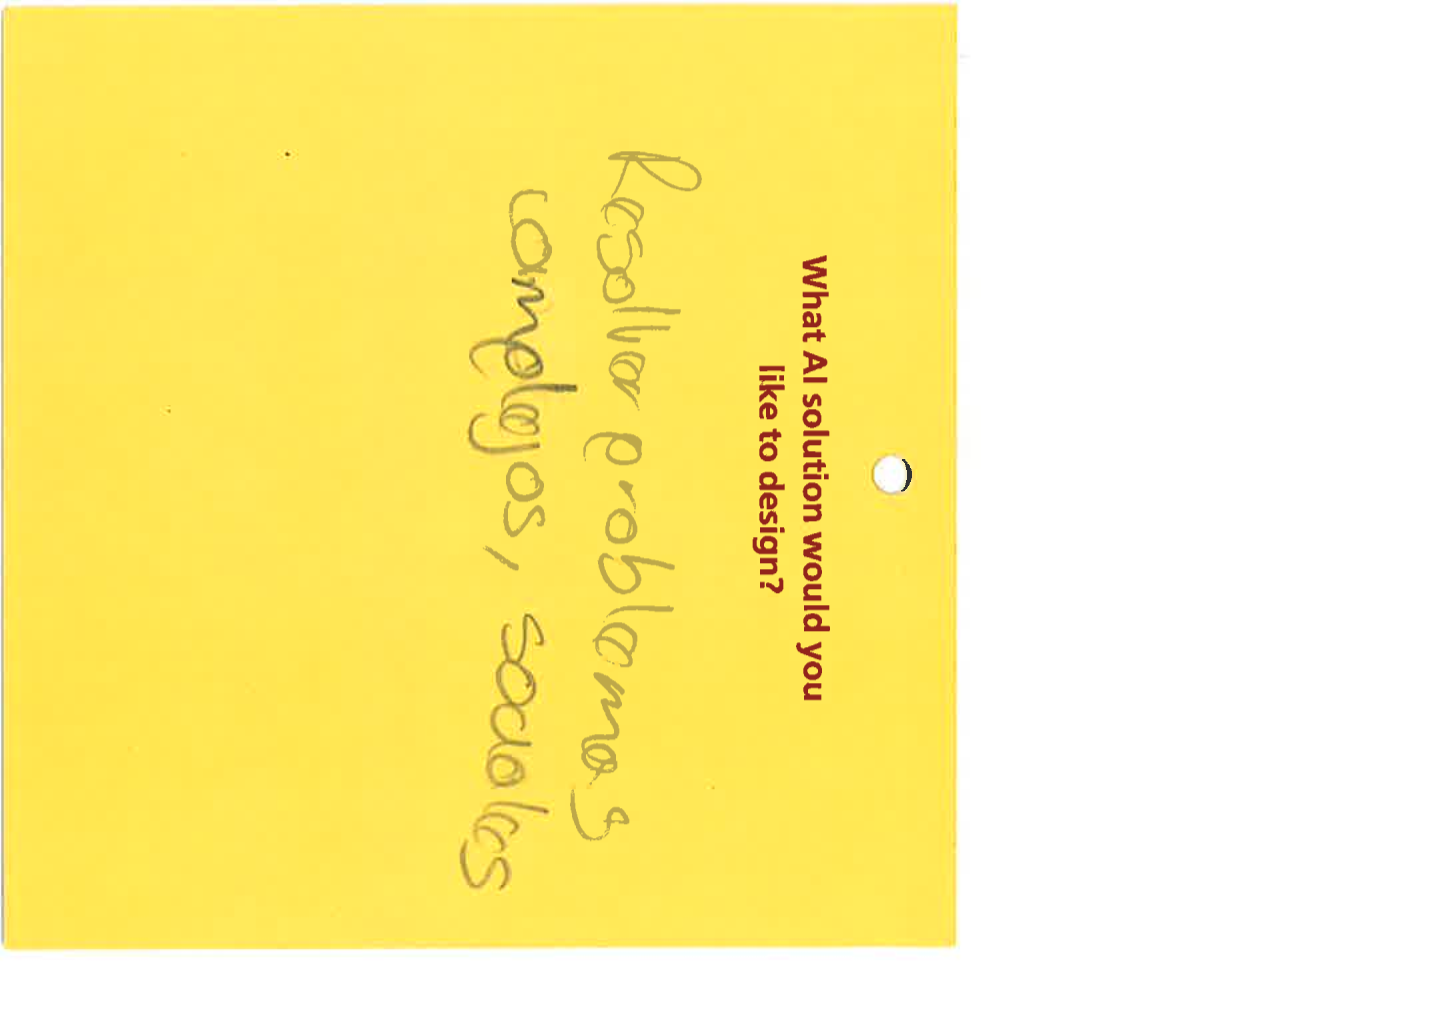 What AI solution would you
like to design?
Resolver problemas
complejos, sociales